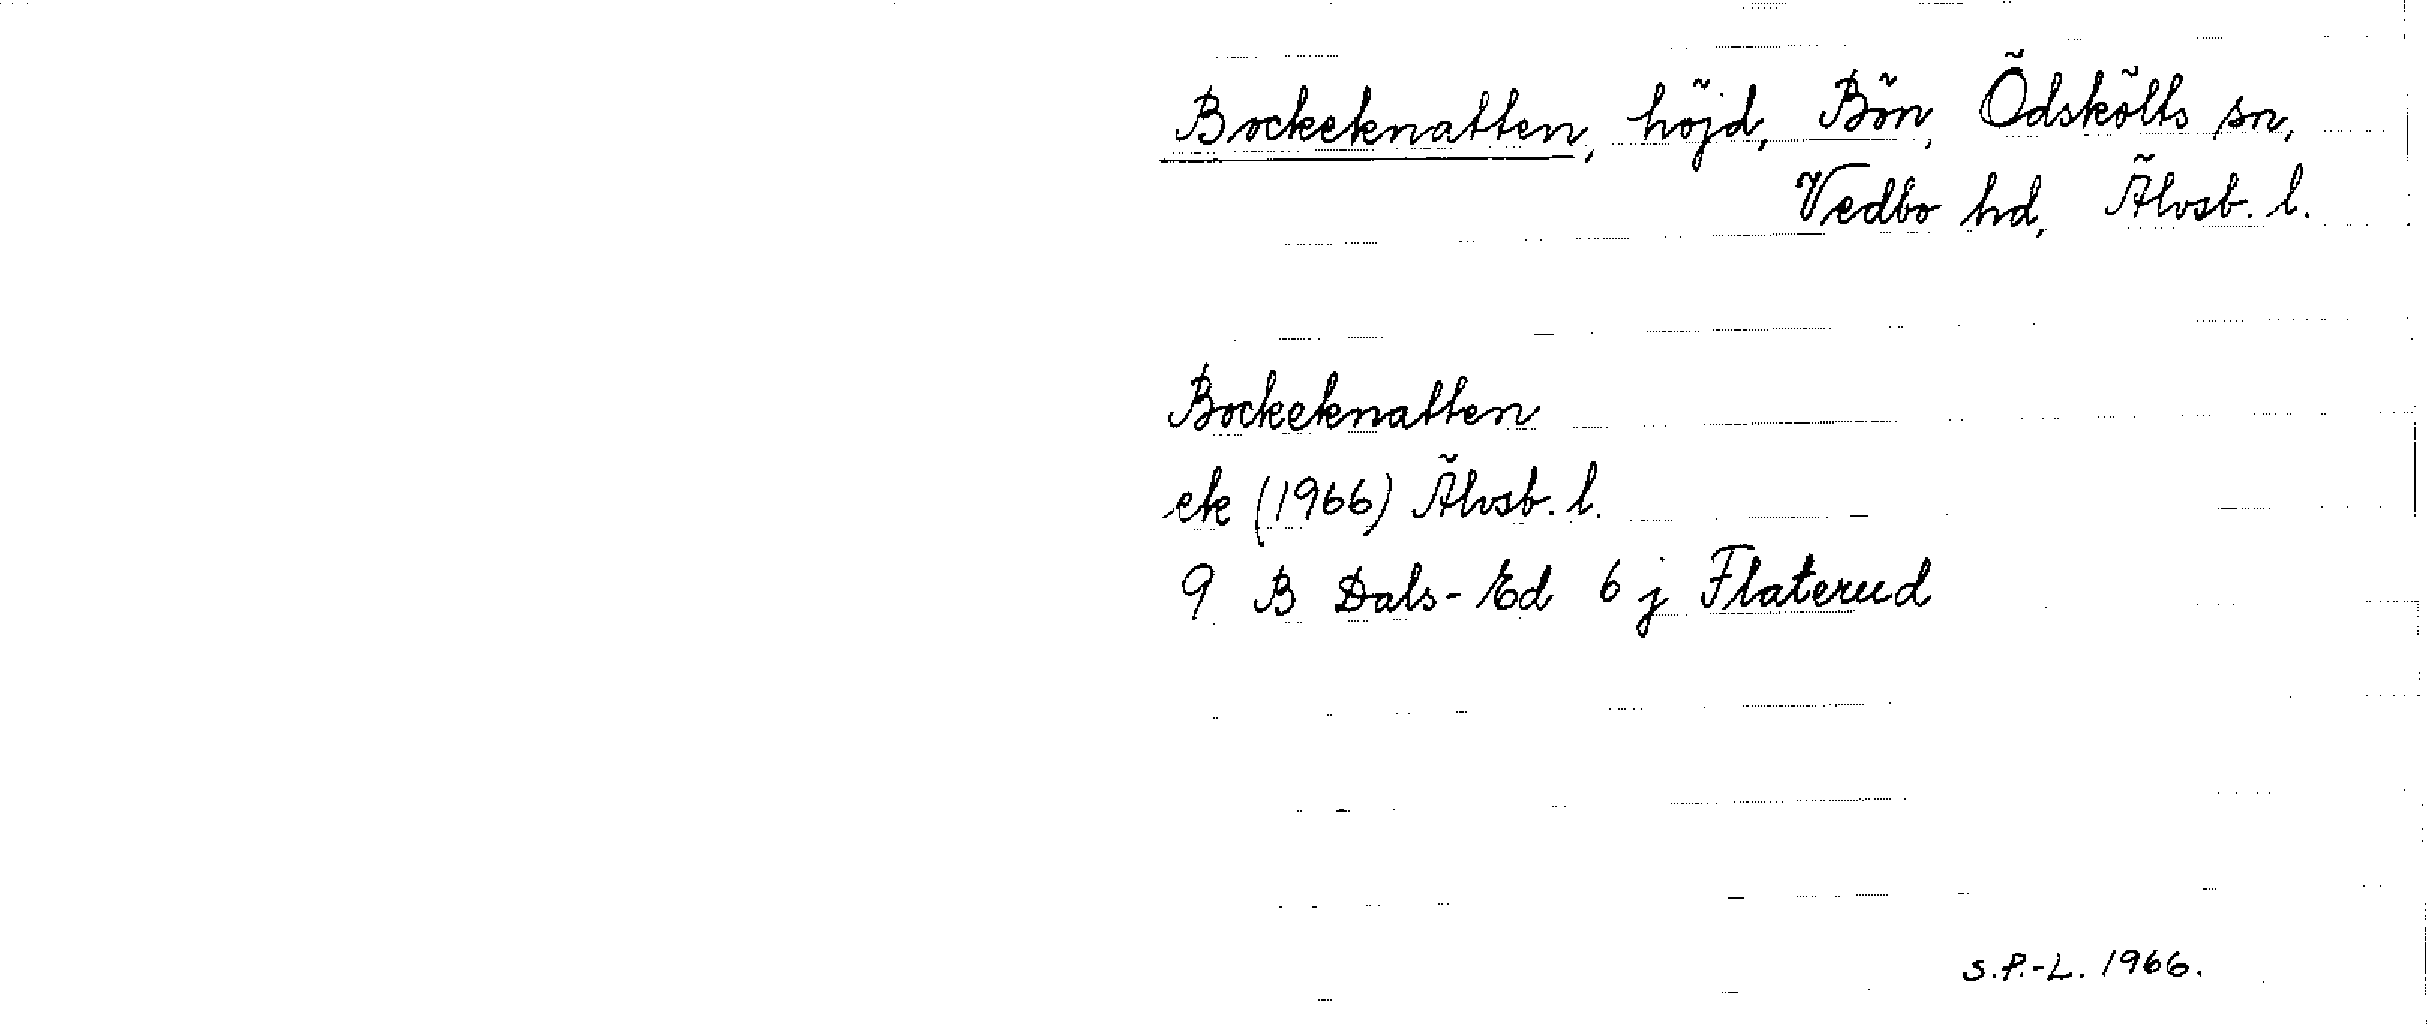 Bockeknatten, höjd, Bön, Ödskölts sn,
Vedbo hd, Älvsb. l.
Bockeknatten
ek (1966) Älvsb. l.
9 B Dals-Ed 6 j Flaterud
S.P.-L. 1966.